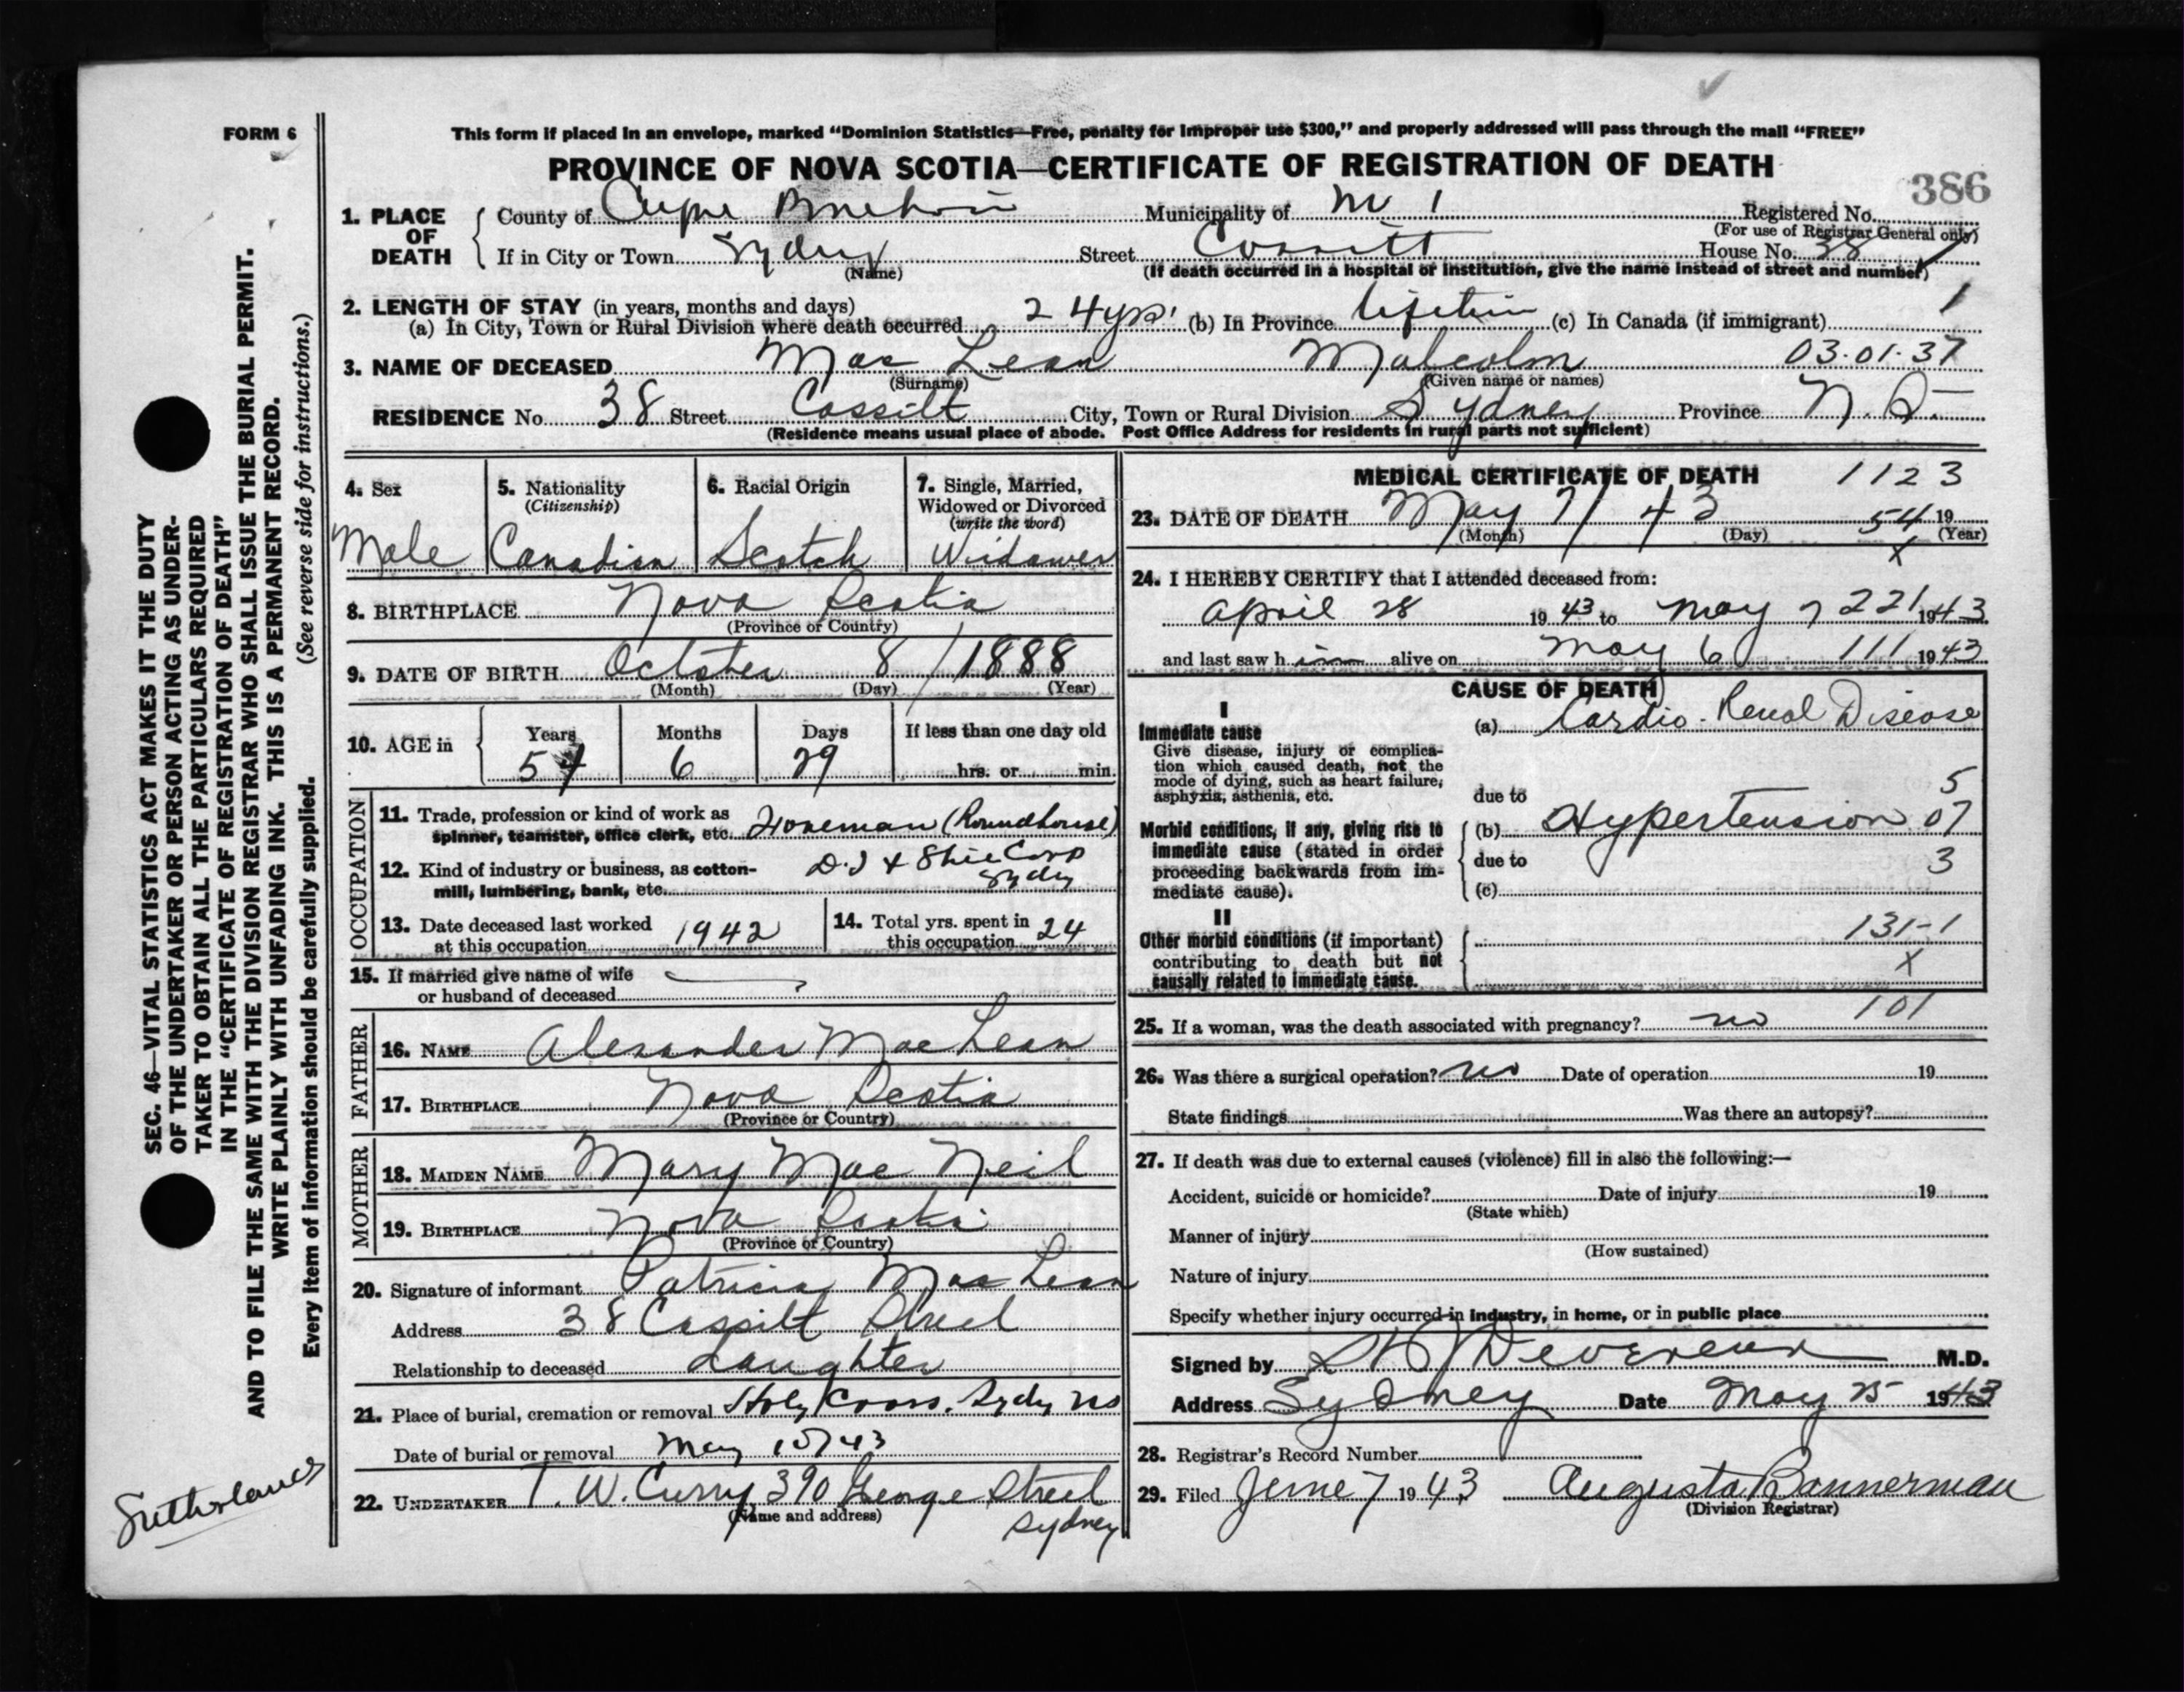 FORM 6
This form if placed in an envelope, marked "Dominion Statistics—Free, penalty for improper use $300," and properly addressed will pass through the mail "FREE"
PROVINCE OF NOVA SCOTIA—CERTIFICATE OF REGISTRATION OF DEATH
386
1. PLACE OF DEATH
County of Cape Breton Municipality of Registered No.
(For use of Registrar General only)
If in City or Town Sydney Street Cossitt House No. 38
(Name) (If death occurred in a hospital or institution, give the name instead of street and number)
2. LENGTH OF STAY (in years, months and days) 1
(a) In City, Town or Rural Division where death occurred 24 yrs. (b) In Province lifetime (c) In Canada (if immigrant)
3. NAME OF DECEASED Mac Lean Malcolm 03.01.37
(Surname) (Given name or names)
RESIDENCE No. 38 Street Cossitt City, Town or Rural Division Sydney Province N.S.
(Residence means usual place of abode. Post Office Address for residents in rural parts not sufficient)
4. Sex
Male
5. Nationality
(Citizenship)
Canadian
6. Racial Origin
Scotch
7. Single, Married, Widowed or Divorced
(write the word)
Widower
8. BIRTHPLACE Nova Scotia
(Province or Country)
9. DATE OF BIRTH October 8 / 1888
(Month) (Day) (Year)
10. AGE in
Years 54
Months 6
Days 29
If less than one day old
hrs. or min.
OCCUPATION
11. Trade, profession or kind of work as
spinner, teamster, office clerk, etc. (Roundhouse)
12. Kind of industry or business, as cotton-
mill, lumbering, bank, etc. D. I & Steel Corp
Sydney
13. Date deceased last worked
at this occupation 1942
14. Total yrs. spent in
this occupation 24
15. If married give name of wife
or husband of deceased
FATHER
16. NAME Alexander Mac Lean
17. BIRTHPLACE Nova Scotia
(Province or Country)
MOTHER
18. MAIDEN NAME Mary Mac Neil
19. BIRTHPLACE Nova Scotia
(Province or Country)
20. Signature of informant Patricia Mac Lean
Address 38 Cossitt Street
Relationship to deceased daughter
21. Place of burial, cremation or removal Holy Cross, Sydney NS
Date of burial or removal May 10/43
22. UNDERTAKER T. W. Curry, 390 George Street
(Name and address) Sydney
MEDICAL CERTIFICATE OF DEATH 1123
23. DATE OF DEATH May 7/43 54 19
(Month) (Day) (Year)
X
24. I HEREBY CERTIFY that I attended deceased from:
April 28 1943 to May 7 221 1943
and last saw h im alive on May 6 111 1943
CAUSE OF DEATH
I
Immediate cause
Give disease, injury or complica-
tion which caused death, not the
mode of dying, such as heart failure,
asphyxia, asthenia, etc.
(a) Cardio-Renal Disease
due to 5
Morbid conditions, if any, giving rise to
immediate cause (stated in order
proceeding backwards from im-
mediate cause).
(b) Hypertension 07
due to 3
(c)
II
Other morbid conditions (if important)
contributing to death but not
causally related to immediate cause.
131-1
X
25. If a woman, was the death associated with pregnancy? no 101
26. Was there a surgical operation? no Date of operation 19
State findings Was there an autopsy?
27. If death was due to external causes (violence) fill in also the following:—
Accident, suicide or homicide? Date of injury 19
(State which)
Manner of injury
(How sustained)
Nature of injury
Specify whether injury occurred in industry, in home, or in public place
Signed by Devereux M.D.
Address Sydney Date May 25 1943
28. Registrar's Record Number
29. Filed June 7 1943 Augusta Bannerman
(Division Registrar)
SEC. 46—VITAL STATISTICS ACT MAKES IT THE DUTY
OF THE UNDERTAKER OR PERSON ACTING AS UNDER-
TAKER TO OBTAIN ALL THE PARTICULARS REQUIRED
IN THE "CERTIFICATE OF REGISTRATION OF DEATH"
AND TO FILE THE SAME WITH THE DIVISION REGISTRAR WHO SHALL ISSUE THE BURIAL PERMIT.
WRITE PLAINLY WITH UNFADING INK. THIS IS A PERMANENT RECORD.
Every item of information should be carefully supplied. (See reverse side for instructions.)